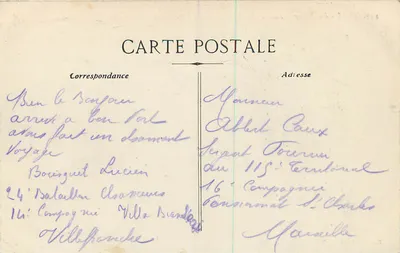 CARTE POSTALE
Correspondance
Bien le Bonjour
arrivé a bon Port
avons fait un charmant
Voyage
Bousquet Lucien
24e Bataillon Chasseurs
14e Compagnie Villa
Villefranche
Adresse
Monsieur
Albert Caux
Sergent Fourrier
au 115e Territorial
16e Compagnie
Pensionnat St Charles
Marseille